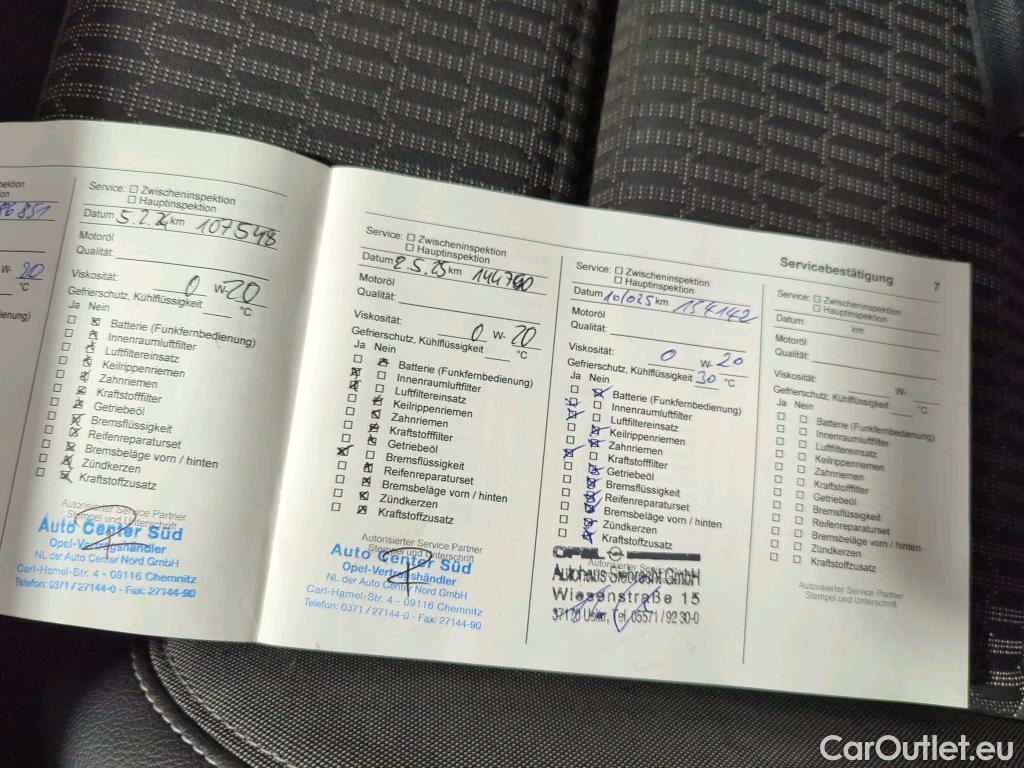 pektion
ion
86 851
W- 20
ienung)
Service: ☐ Zwischeninspektion
☐ Hauptinspektion
Datum 5.2.24 km 107548
Motoröl
Qualität:
Viskosität: 0 W- 20
Gefrierschutz, Kühlflüssigkeit °C
Ja Nein
Batterie (Funkfernbedienung)
Innenraumluftfilter
Luftfiltereinsatz
Keilrippenriemen
Zahnriemen
Kraftstofffilter
Getriebeöl
Bremsflüssigkeit
Reifenreparaturset
Bremsbeläge vorn / hinten
Zündkerzen
Kraftstoffzusatz
Autorisierter Service Partner
Stempel und Unterschrift
Auto Center Süd
Opel-Vertragshändler
NL der Auto Center Nord GmbH
Carl-Hamel-Str. 4 - 09116 Chemnitz
Telefon: 0371 / 27144-0 - Fax: 27144-90
Service: ☐ Zwischeninspektion
☐ Hauptinspektion
Datum 2.5.25 km 144790
Motoröl
Qualität:
Viskosität: 0 W- 20
Gefrierschutz, Kühlflüssigkeit °C
Ja Nein
Batterie (Funkfernbedienung)
Innenraumluftfilter
Luftfiltereinsatz
Keilrippenriemen
Zahnriemen
Kraftstofffilter
Getriebeöl
Bremsflüssigkeit
Reifenreparaturset
Bremsbeläge vorn / hinten
Zündkerzen
Kraftstoffzusatz
Autorisierter Service Partner
Stempel und Unterschrift
Auto Center Süd
Opel-Vertragshändler
NL der Auto Center Nord GmbH
Carl-Hamel-Str. 4 - 09116 Chemnitz
Telefon: 0371 / 27144-0 - Fax: 27144-90
Service: ☐ Zwischeninspektion
☐ Hauptinspektion
Datum 10/025 km 154142
Motoröl
Qualität:
Viskosität: 0 W- 20
Gefrierschutz, Kühlflüssigkeit 30 °C
Ja Nein
Batterie (Funkfernbedienung)
Innenraumluftfilter
Luftfiltereinsatz
Keilrippenriemen
Zahnriemen
Kraftstofffilter
Getriebeöl
Bremsflüssigkeit
Reifenreparaturset
Bremsbeläge vorn / hinten
Zündkerzen
Kraftstoffzusatz
OPEL
Autohaus Siebrecht GmbH
Wiesenstraße 15
37170 Uslar, Tel. 05571 / 92 30-0
Servicebestätigung 7
Service: ☐ Zwischeninspektion
☐ Hauptinspektion
Datum km
Motoröl
Qualität:
Viskosität: W-
Gefrierschutz, Kühlflüssigkeit °C
Ja Nein
Batterie (Funkfernbedienung)
Innenraumluftfilter
Luftfiltereinsatz
Keilrippenriemen
Zahnriemen
Kraftstofffilter
Getriebeöl
Bremsflüssigkeit
Reifenreparaturset
Bremsbeläge vorn / hinten
Zündkerzen
Kraftstoffzusatz
Autorisierter Service Partner
Stempel und Unterschrift
CarOutlet.eu